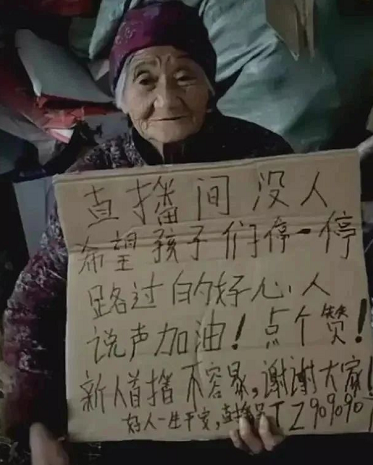 直播间没人
希望孩子们停一停
路过的好心人
说声加油！点个赞！
新人首播不容易，谢谢大家！
好人一生平安，直播号TZ909090！